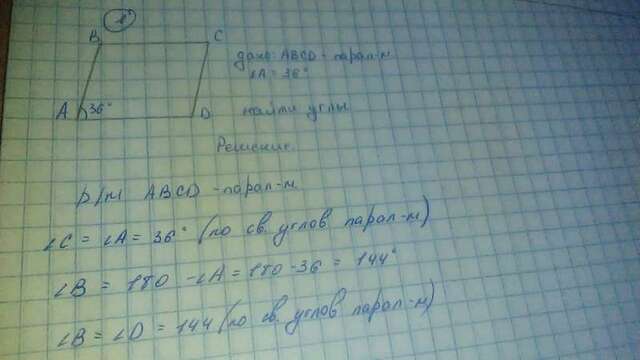 1
B C
дано: ABCD - парал-м
∠A = 36°
A 36° D
найти углы
Решение
р/м ABCD - парал-м
∠C = ∠A = 36° (по св. углов парал-м)
∠B = 180 - ∠A = 180 - 36 = 144°
∠B = ∠D = 144 (по св. углов парал-м)